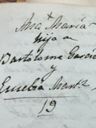 Ana María
hija de
Bartolome García
y
Eusebia Mart.z
19